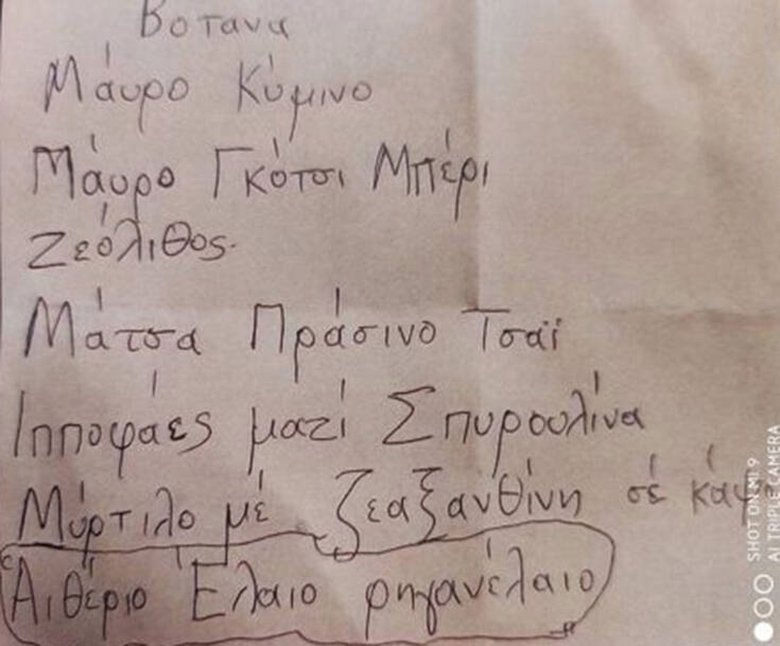 Βοτανα
Μάυρο Κύμινο
Μάυρο Γκότσι Μπέρι
Ζεόλιθος.
Μάτσα Πράσινο Τσαϊ
Ιπποφάες μαζί Σπυρουλίνα
Μύρτιλο μέ ζεαξανθίνη σέ
Αιθέριο Ελαιο ρηγανέλαιο
SHOT ON MI 9
AI TRIPLE CAMERA